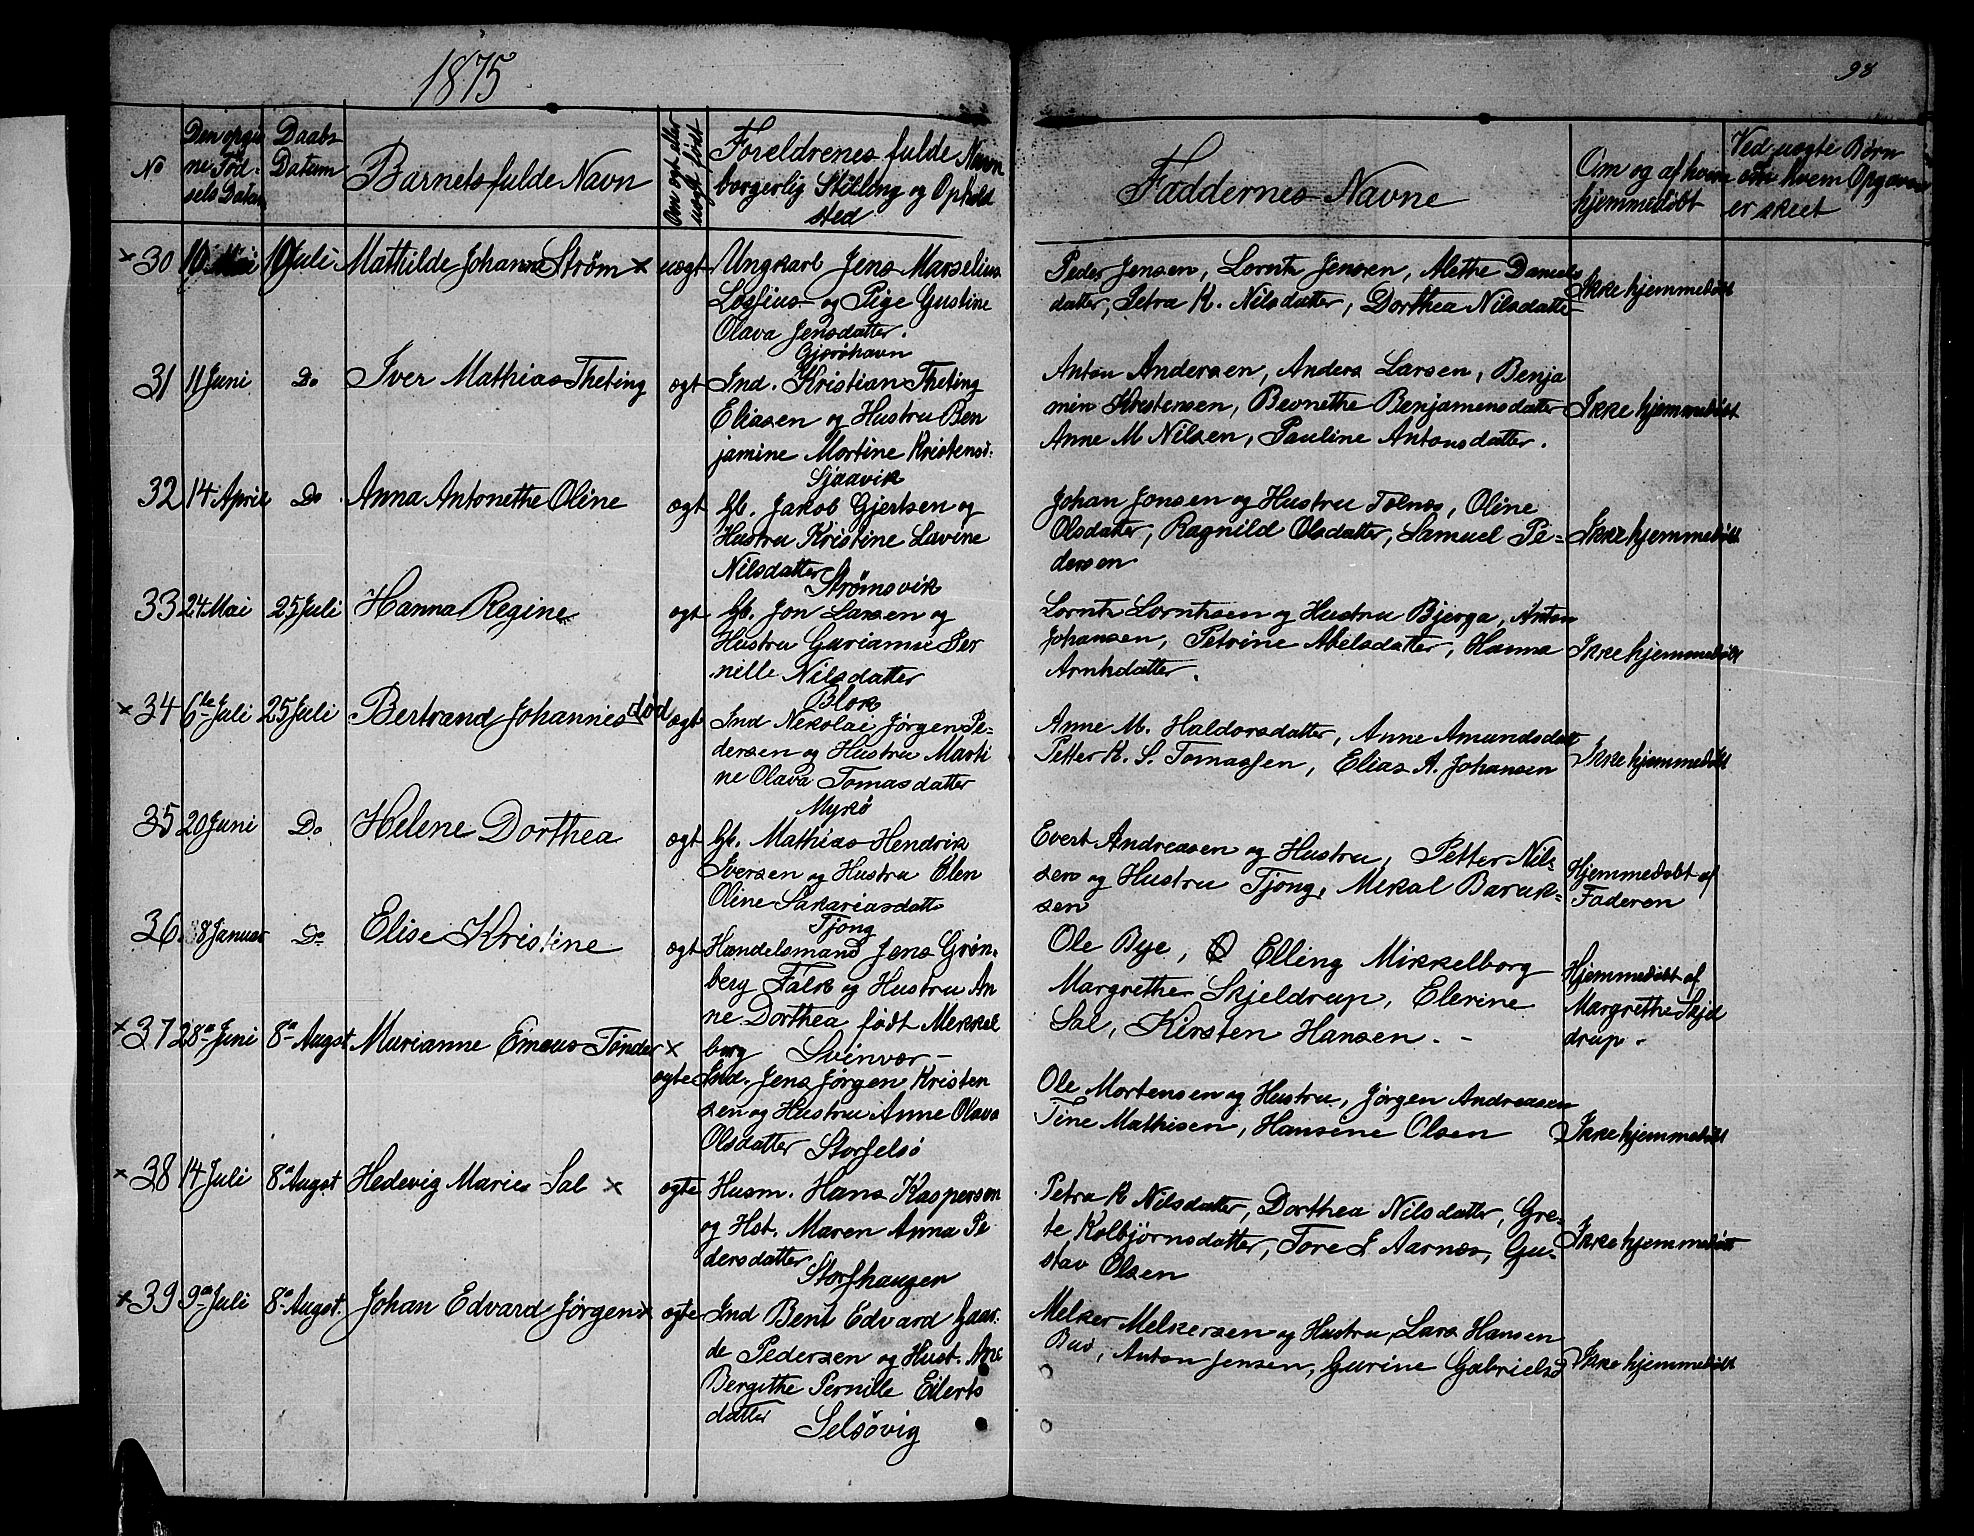 1875
98
No
Den opgivne Fødsels Datum
Daabs Datum
Barnets fulde Navn
Om ægt eller uægt født
Foreldrenes fulde Navn
borgerlig Stilling og Opholds
sted
Faddernes Navne
Om og af hvem
hjemmedøbt
Ved uægte Børn
om hvem Opgaven
er skeet
× 30 10 Mai 10 Juli Mathilde Johanna Strøm × uægt Ungkarl Jens Marselius
Lossius og Pige Gustine
Olava Jensdatter.
Gjerøhavn
Peder Jensen, Lornts Jensen, Methe Daniels
datter, Petra K. Nilsdatter, Dorthea Nilsdatte
Ikke hjemmedøbt
31 11 Juni Do Iver Mathias Theting ægt Ind. Kristian Theting
Eliasen og Hustru Ben
jamine Martine Kristensd.
Sjaavik
Anton Andersen, Anders Larsen, Benja
min Kristensen, Beonethe Benjamensdatter
Anne M Nilsen, Pauline Antonsdatter.
Ikke hjemmedøbt
32 14 April Do Anna Antonethe Oline ægt Gb. Jakob Gjertsen og
Hustru Kristine Lavine
Nilsdatter
Strømsvik
Johan Jonsen og Hustru Tolnæs, Oline
Olsdatter, Ragnild Olsdatter, Samuel Pe=
dersen
Ikke hjemmedøbt
33 24 Mai 25 Juli Hanna Regine ægt Gb. Jon Larsen og
Hustru Gurianne Per
nille Nilsdatter
Blok
Lornts Lorntsen og Hustru Bjerga, Anton
Johansen, Petrine Abelsdatter, Hanna
Arntsdatter.
Ikke hjemmedøbt
× 34 6te Juli 25 Juli Bertrand Johannes død ægt Ind Nekolai Jørgen Pe=
dersen og Hustru Marti
ne Olava Tomasdatter
Mykø
Anne M. Haldorsdatter, Anne Amundsdatt
Petter K. S. Tomassen, Elias A. Johansen
Ikke hjemmedøbt
35 20 Juni Do Helene Dorthea ægt Gb. Mathias Hendrik
Iversen og Hustru Elen
Oline Sakariasdatt
Tjong
Evert Andreasen og Hustru, Petter Nil=
sen og Hustru Tjong, Mekal Baruk=
sen
Hjemmedøbt af
Faderen
36 8 Januar Do Elise Kristine ægt Handelsmand Jens Grøn=
berg Falk og Hustru An
ne Dorthea født Mekkel
borg Svinvær –
Ole Bye, Elling Mikkelborg
Margrethe Skjeldrup, Elerine
Sal, Kirsten Hansen. -
Hjemmedøbt af
Margrethe Skjel
drup.
× 37 28de Juni 8de Augst Marianne Emaus Tønder × ægte Ind. Jens Jørgen Kristen
sen og Hustru Anne Olava
Olsdatter Storselsø
Ole Mortensen og Hustru, Jørgen Andreasen
Tine Mathisen, Hansine Olsen
Ikke hjemmedøbt
× 38 14 Juli 8de Augst Hedevig Marie Sal × ægte Husm. Hans Kaspersen
og Hst. Maren Anna Pe
dersdatter
Storshaugen
Petra K Nilsdatter, Dorthea Nilsdatter, Gre=
te Kolbjørnsdatter, Tore J. Aarnes, Gu=
stav Olsen
Ikke hjemmedøbt
× 39 9de Juli 8de Augst. Johan Edvard Jørgen × ægte Ind Bent Edvard Gaar=
de Pedersen og Hust. Ane
Bergithe Pernille Eilerts
datter
Selsøvig
Melker Melkersen og Hustru, Lars Hansen
Buø, Anton Jensen, Gurine Gabrielsd
Ikke hjemmedøbt